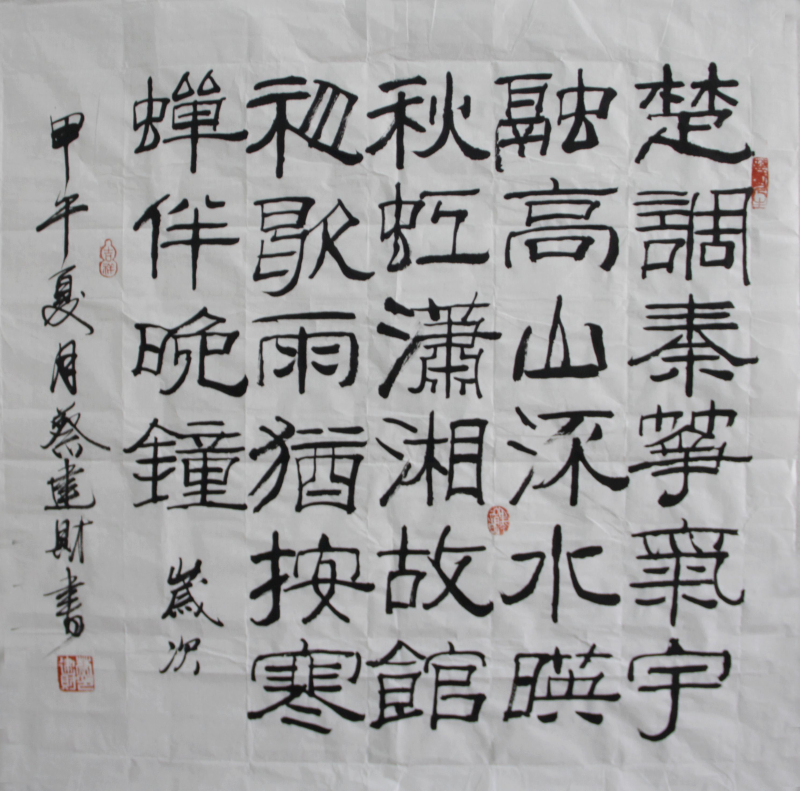 楚調秦箏氣宇
融高山深水暎
秋虹瀟湘故館
初歇雨猶按寒
蟬伴晚鐘 歲次
甲午夏月蔡建財書